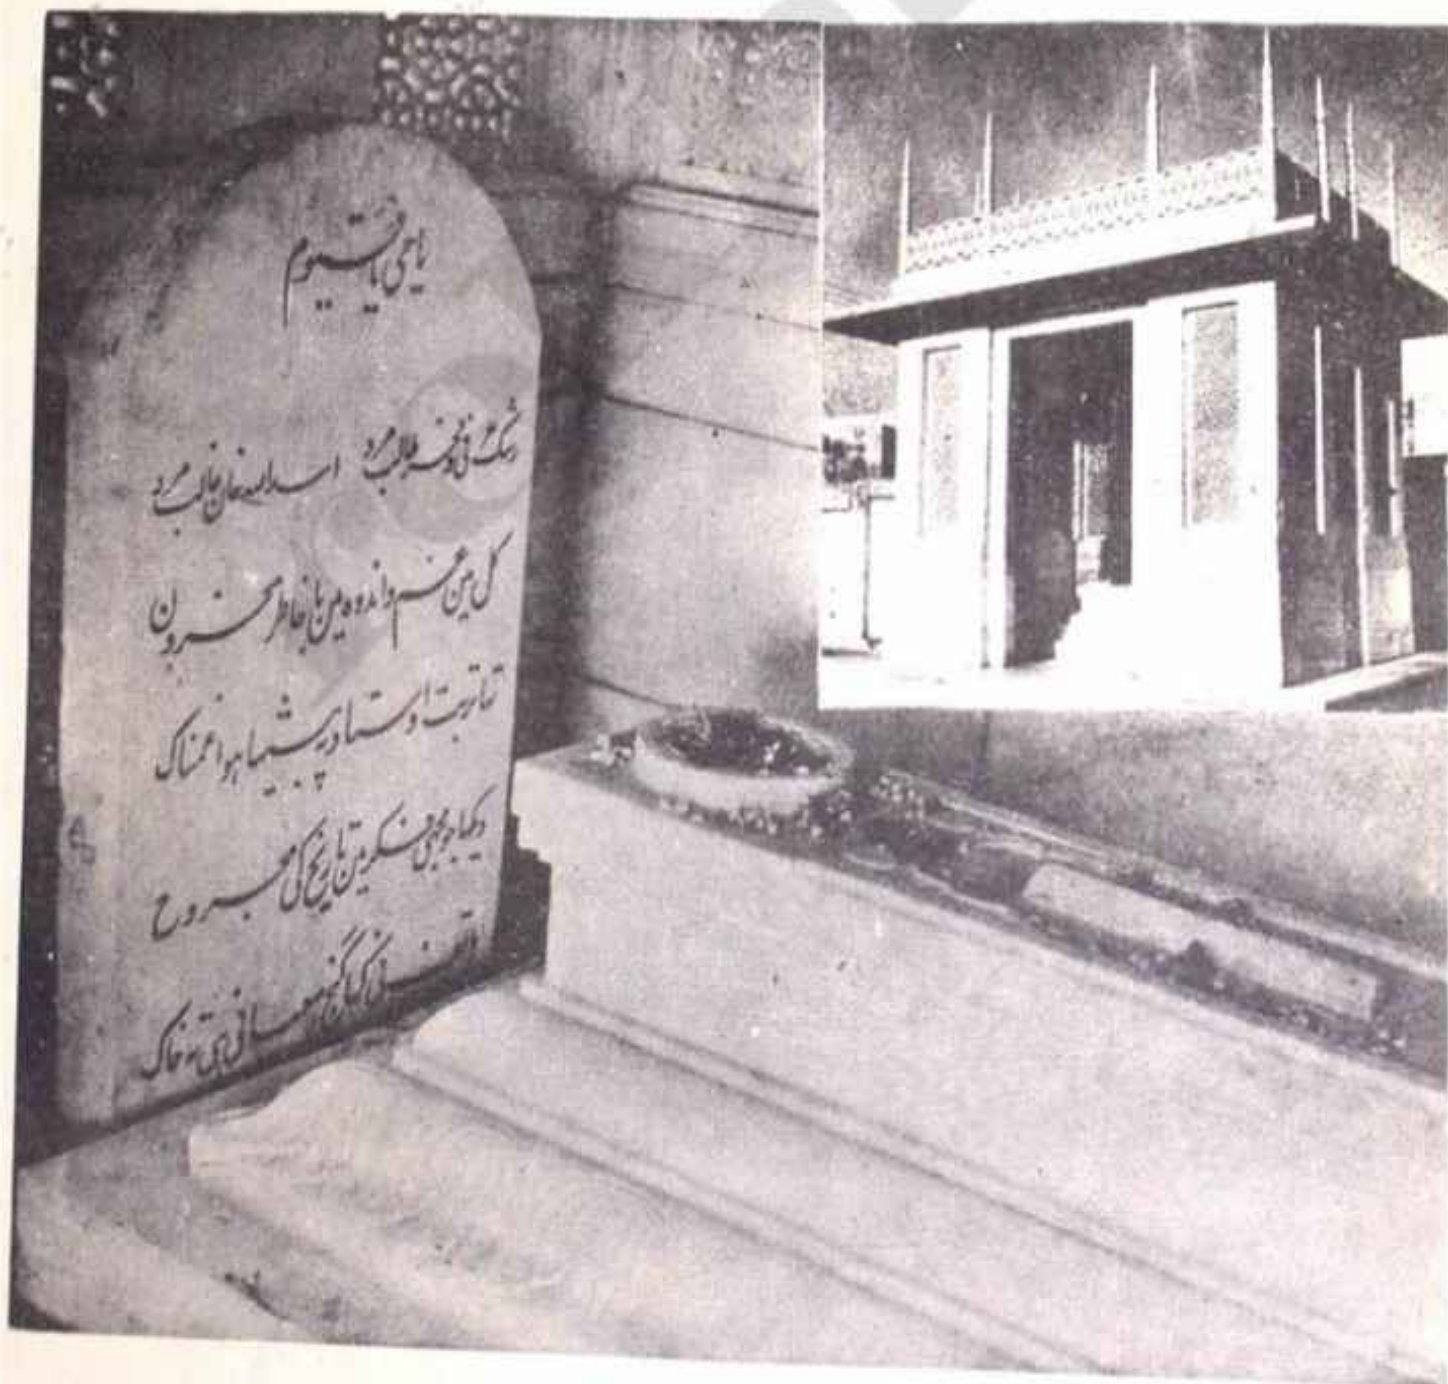 یا حی یا قیوم
رشک عرفی و فخر طالب مرد اسد اللہ خان غالب مرد
کل مین غم و اندوہ مین با خاطر محزون
تھا تربت اوستاد پہ بیٹھا ہوا غمناک
دیکھا جو مجھے فکر مین تاریخ کی مجروح
ہاتف نی کہا گنج معانی ہی تہ خاک